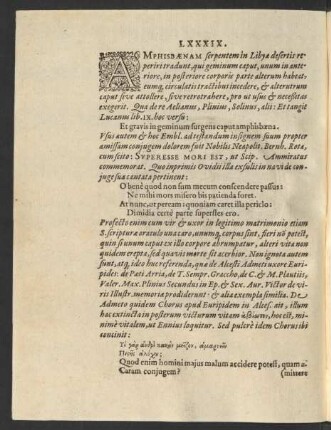 LXXXIX.
AMPHISBÆNAM serpentem in Libya desertis re-
periri tradunt, qui geminum caput, unum in ante-
riore, in posteriore corporis parte alterum habeat:
eumq, circulati tractione incedere, & alterutrum
caput sive attollere, sive retrotrahere, pro ut usus & necessitas
exegerit. Qua de re Aelianus, Plinius, Solinus, alii: Et tangit
Lucanus lib. IX. hoc versu:
Et gravis in geminum surgens caput amphisbæna.
Usus autem & hoc Embl. ad testandum insignem suum propter
amissam conjugem dolorem fuit Nobilis Neapolit. Bernb. Rota,
cum scito: SUPERESSE MORI EST, ut Scip. Ammiratus
commemorat. Quo inprimis Ovidii illa exsulis in navi de con-
juge sua cantata pertinent:
O bene quod non sum mecum conscendere passus:
Ne mihi mors misero bis patienda foret.
At nunc, ut peream: quoniam caret illa periclo:
Dimidia certè parte superstes ero.
Profecto enim cum vir & uxor in legitimo matrimonio etiam
S. scripturæ oraculo una caro, unumq, corpus sint, fieri nō potest,
quin si unum caput ex illo corpore abrumpatur, alteri vita non
quidem erepta, sed quavis morte sit acerbior. Non ignota autem
sunt, atq, ideo huc referenda, quæ de Alcesti Admeti uxore Euri-
pides: de Pæti Arria, de T. Sempr. Graccho, de C. & M. Plautiis,
Valer. Max. Plinius Secundus in Ep. & Sex. Aur. Victor de vi-
ris Illustr. memoriæ prodiderunt: & alia exempla similia. De
Admeto quidem Chorus apud Euripidem in Alcest. ait, illum
hac extincta in posterum victurum vitam hoc est, mi-
nimè vitalem, ut Ennius loquitur. Sed pulcrè idem Chorus ibi
concinit:
Τί γὰρ ἀνδρὶ κακὸν μεῖζον, ἁμαρτεῖν
Πιστῆς ἀλόχου;
Quod enim homini majus malum accidere potest, quam a-
Caram conjugem? (mittere